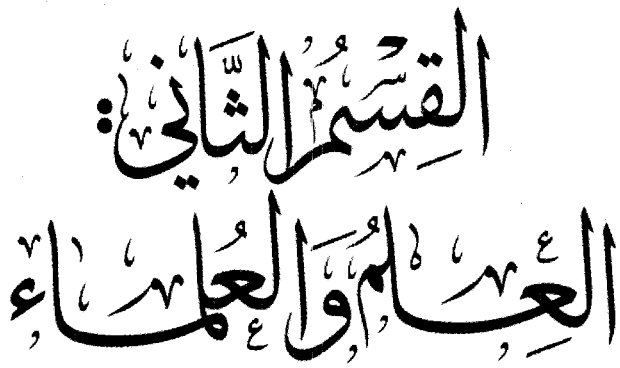 القِسْمُ الثَّانِي:
العِلمُ وَالعُلمَاء